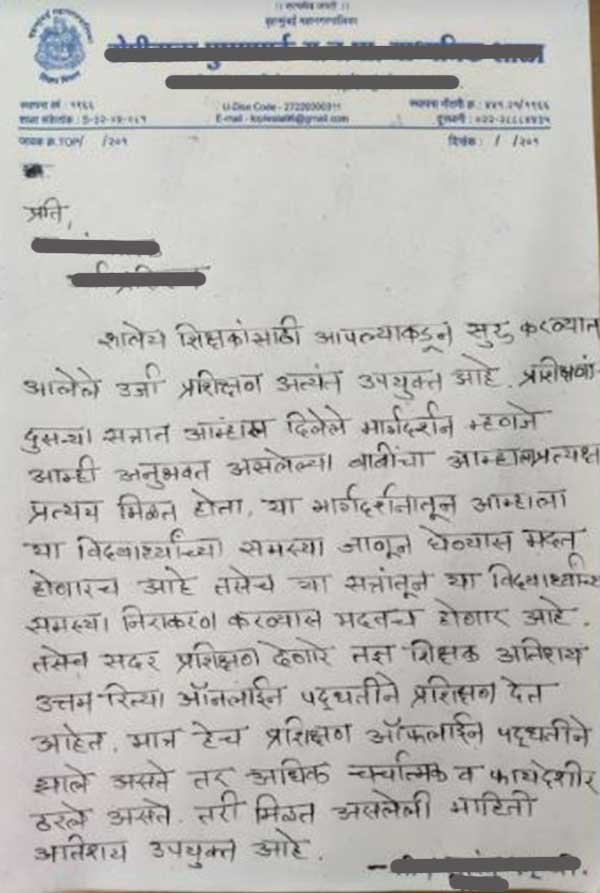 ।। सत्यमेव जयते ।।
बृहन्मुंबई महानगरपालिका
स्थापना वर्ष : १९६६
U-Dise Code - 27220300311
स्थापना नोंदणी क्र.: ४४१.२५/१९६६
शाळा संकेतांक : S-32-04-069
दूरध्वनी : ०२२-२८८४४३५
जावक क्र.TOP/ /२०१
दिनांक: / /२०१
प्रति,
शालेय शिक्षकांसाठी आपल्याकडून सुरु करण्यात
आलेले उर्जा प्रशिक्षण अत्यंत उपयुक्त आहे. प्रशिक्षणा-
दुसऱ्या सत्रात आम्हांस दिलेले मार्गदर्शन म्हणजे
आम्ही अनुभवत असलेल्या बाबींचा आम्हाला प्रत्यक्ष
प्रत्यय मिळत होता. या मार्गदर्शनातून आम्हाला
या विद्यार्थ्यांच्या समस्या जाणून घेण्यास मदत
होणारच आहे तसेच या सत्रांतून या विद्यार्थ्यांच्य
समस्या निराकरण करण्यास मदतच होणार आहे.
तसेच सदर प्रशिक्षण देणारे तज्ञ शिक्षक अतिशय
उत्तम रित्या ऑनलाईन पद्धतीने प्रशिक्षण देत
आहेत. मात्र हेच प्रशिक्षण ऑफलाईन पद्धतीने
झाले असते तर अधिक चर्चात्मक व फायदेशीर
ठरले असते. तरी मिळत असलेली माहिती
अतिशय उपयुक्त आहे.